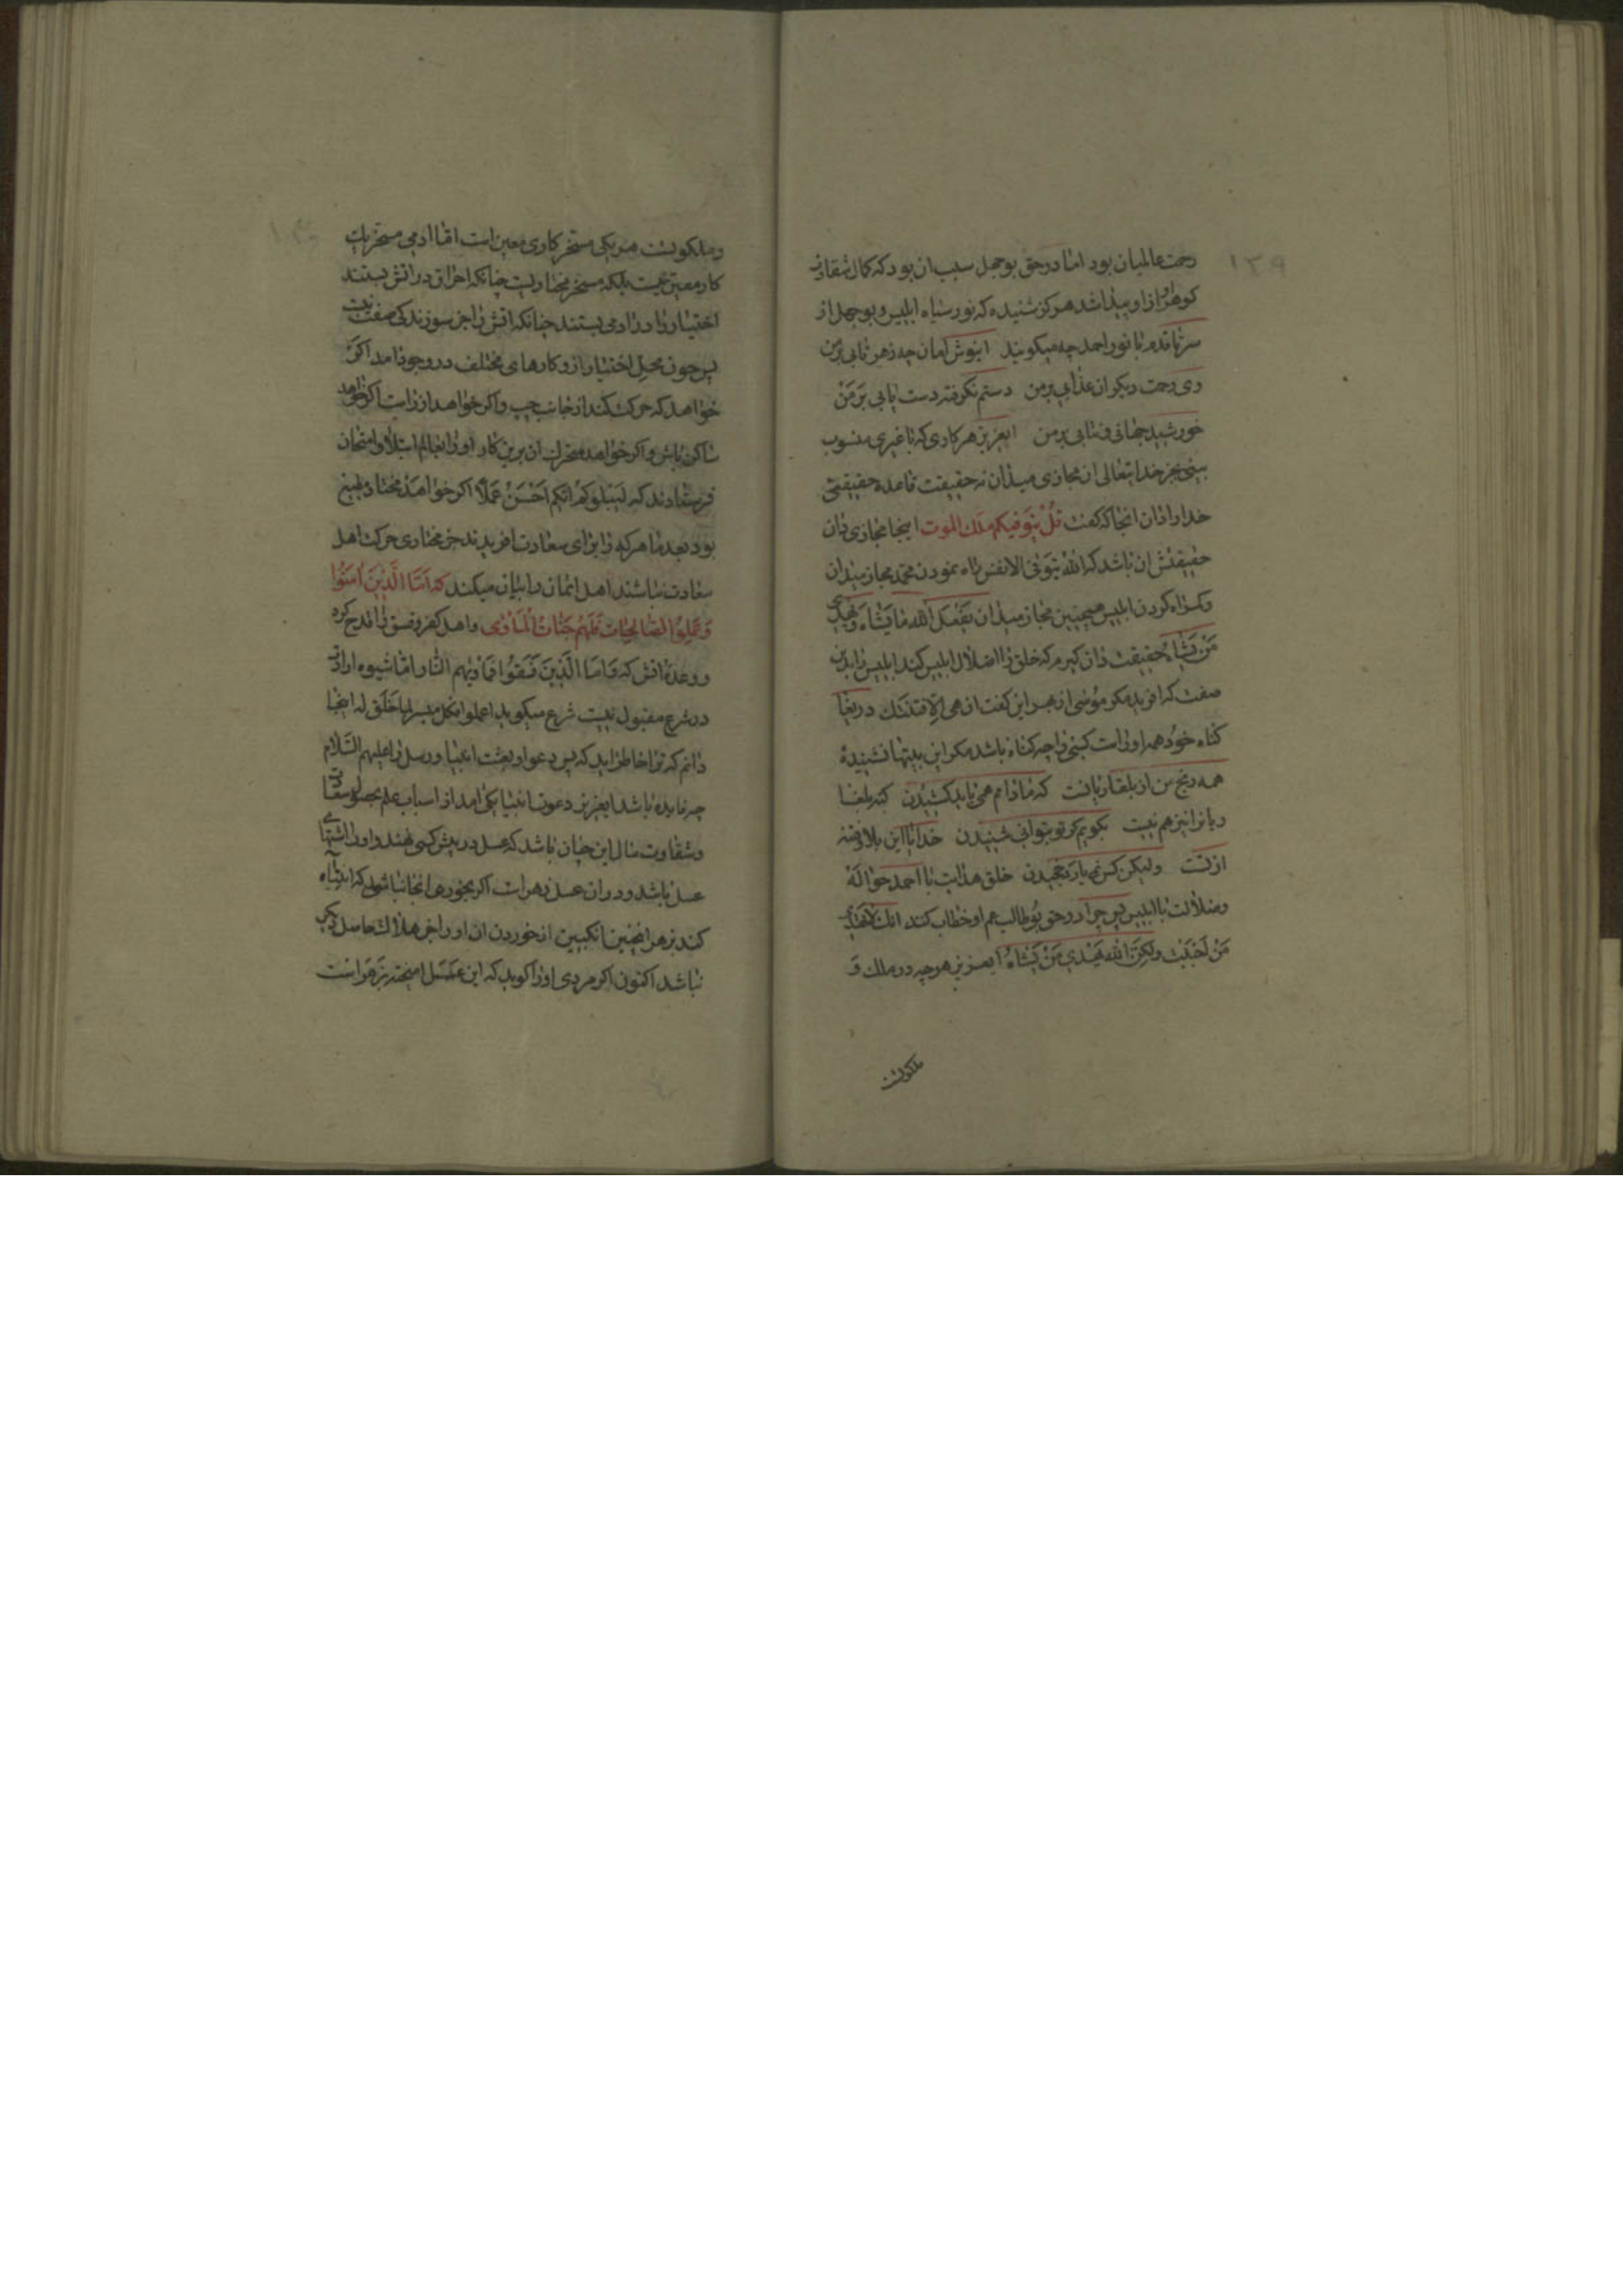 ۱۳۹
رحمت عالمیان بود اما در حق بوجهل سبب ان بود که کمال شقاوت
کوهر او ازاو پیدا شد هرکز شنیده که نور سیاه ابلیس و بوجهل از
سر تا قدم با نور احمد چه میکوید ای نوش لمان چه زهر نابی بر من
وی رحمت دیکران عذابی بر من دستم نکرفته دست یابی بر من
خورشید جهانی و نتابی بر من ایعزیز هر کاری که با غیری منسوب
بینی بجز خدایتعالی ان مجازی میدان نه حقیقت فاعل حقیقی
خدا را دان انجا که کفت قُلْ یتَوَفیکم مَلَك الموت اینجا مجازی دان
حقیقتش ان باشد که الله یتوفی الانفس راه نمودن محمد مجاز میدان
و کمراه کردن ابلیس همچنین مجاز میدان یفعل الله ما یشاء و یهدی
مَنْ یَشاء حقیقت دان کیرم که خلق را اضلال ابلیس کند ابلیس را بدین
صفت که افرید مکر موسی از بهر این کفت ان هی اِلّا فتنتك دریغا
کناه خود همه اوراست کسی را چه کناه باشد مکر این بیتها نشنیدهٔ
همه رنج من از بلغاریانست که مادامم همی باید کشیدن کنه بلغا
ریانرا نیز هم نیست بکویم کر تو بتوانی شنیدن خدایا این بلا و فتنه
از تست ولیکن کس نمی یارد چخیدن خلق هدایت با احمد حوالهٔ
و ضلالت با ابلیس پس چرا در حق بوطالب عم او خطاب کند انك لا تهدی
مَنْ اَحْبَبْت ولکِنَّ الله یَهْدی مَنْ یَشاءُ ایعزیز هر چه در ملك و
ملکوتست
و ملکوتست هر یکی مسخر کاری معین است امّا ادمی مسخر یك
کار معین نیست بلکه مسخر مختاریست چنانکه احراق در اتش بستند
اختیار را در ادمی بستند چنانکه اتش را جز سوزندکی صفت نیست
پس چون محل اختیار از و کارهای مختلف در وجود امد اکر
خواهد که حرکت کند از جانب چپ و اکر خواهد از راست اکر خواهد
ساکن باش و اکر خواهد متحرك از برین کار او را بعالم ابتلا و امتحان
فرستادند که لَیَبْلوکم ایّکم اَحْسَنُ عَمَلاً اکر خواهد مختار مطیع
بود بعد ما هرکه را برای سعادت افریدند جز مختاری حرکت اهل
سعادت نباشند اهل ایمان را بیان میکند که اَمّا الَّذینَ امَنُوا
وَ عَمِلُوا الصّالحِات فَلَهُمْ جَنّاتُ الْمَأوٰی و اهل کفر و فسق را قدح کرد
و وعدهٔ اتش که وَ اَمّا الَّذینَ فَسَقُوا فَمَأویٰهم النار امّا شیوه ارادت
در شرع مقبول نیست شرع میکوید اعملوا فکل میسر لما خلق له اینجا
دانم که ترا خاطر اید که پس دعوا و بعثت انبیا و رسل را علیهم السّلام
چه فایده باشد ایعزیز دعوت انبیا یکی امد از اسباب علم بحصول سعادت
و شقاوت مثال این چنان باشد که عسل در پیش کسی نهند و او را اشتهای
عسل باشد و در ان عسل زهر است اکر بخوری انجا نباشد که انتباه
کند بزهر انچنین انکبین از خوردن ان او را جز هلاك حاصل دیکر
نباشد اکنون اکر مردی او را کوید که این عَسَل امیخته بزهر است